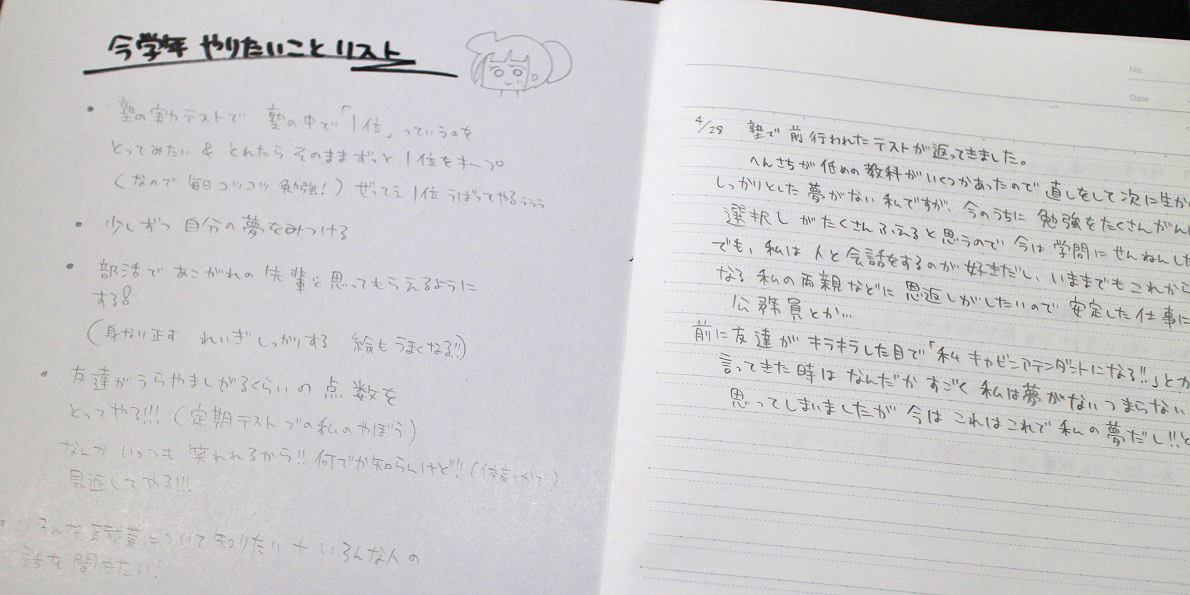 今学年 やりたいこと リスト
• 塾の実力テストで 塾の中で「1位」っていうのを
とってみたい & とれたら そのままずっと 1位をキープ。
(なので 毎日コツコツ 勉強!) ぜってえ 1位 うばってやるぅぅぅ
• 少しずつ 自分の夢をみつける
• 部活で あこがれの 先輩と思ってもらえるように
する!
(身なり正す れいぎしっかりする 絵もうまくなる!!)
• 友達がうらやましがるくらいの 点数を
とってやる!!! (定期テストでの私のやぼう)
なんか いっつも 笑われるから!! 何でか知らんけど!!
見返してやる!!!
• いろんな職業について知りたい + いろんな人の
話を聞きたい!
No.
Date
4/28 塾で 前 行われたテストが返ってきました。
へんさちが 低めの 教科がいくつかあったので 直しをして 次に生か
しっかりとした 夢がない 私ですが、今のうちに 勉強をたくさんがん
選択しがたくさんふえると思うので 今は 学問に せんねんした
でも、私は 人と会話をするのが 好きだし、いままでも これから
なる 私の両親などに 恩返しがしたいので 安定した仕事に
公務員とか…
前に友達が キラキラした目で「私 キャビンアテンダントになる!!」とか
言ってきた時は なんだか すごく 私は夢がない つまらない
思ってしまいましたが 今は これはこれで 私の夢だし!!と